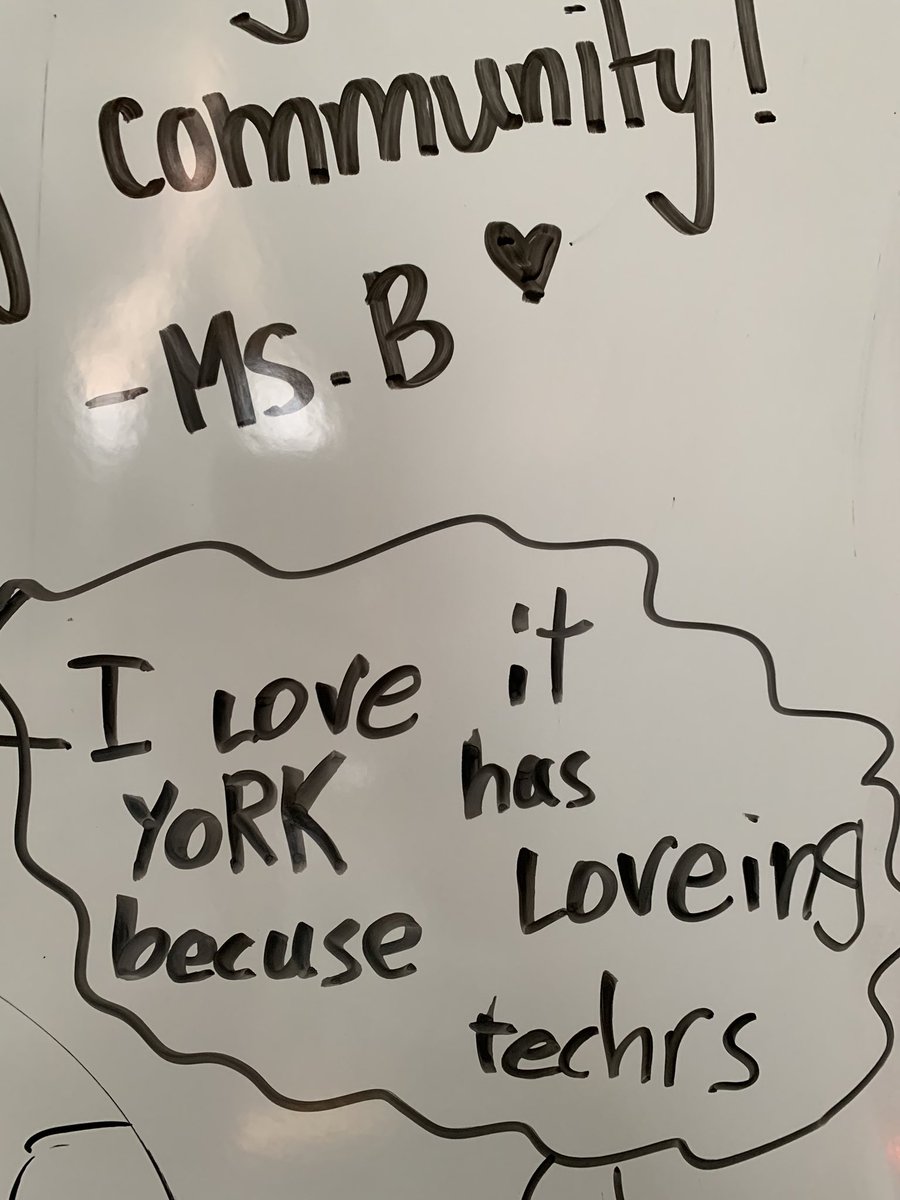 community!
-Ms. B
I Love
YoRK
becuse
it
has
Loveing
techrs